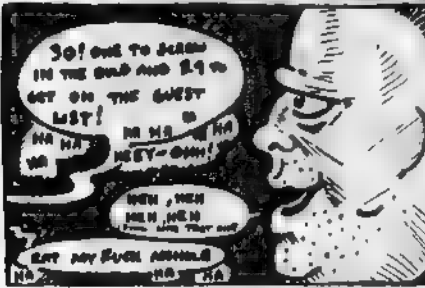 30! ONE TO SCREW
IN THE BULB AND 29 TO
GET ON THE GUEST
LIST!
HA HA
HA
HA HA HA
HEH, HEH
HEH, HEH
THAT ONE
EAT MY FUCK ASSHOLE
HA
HA HA